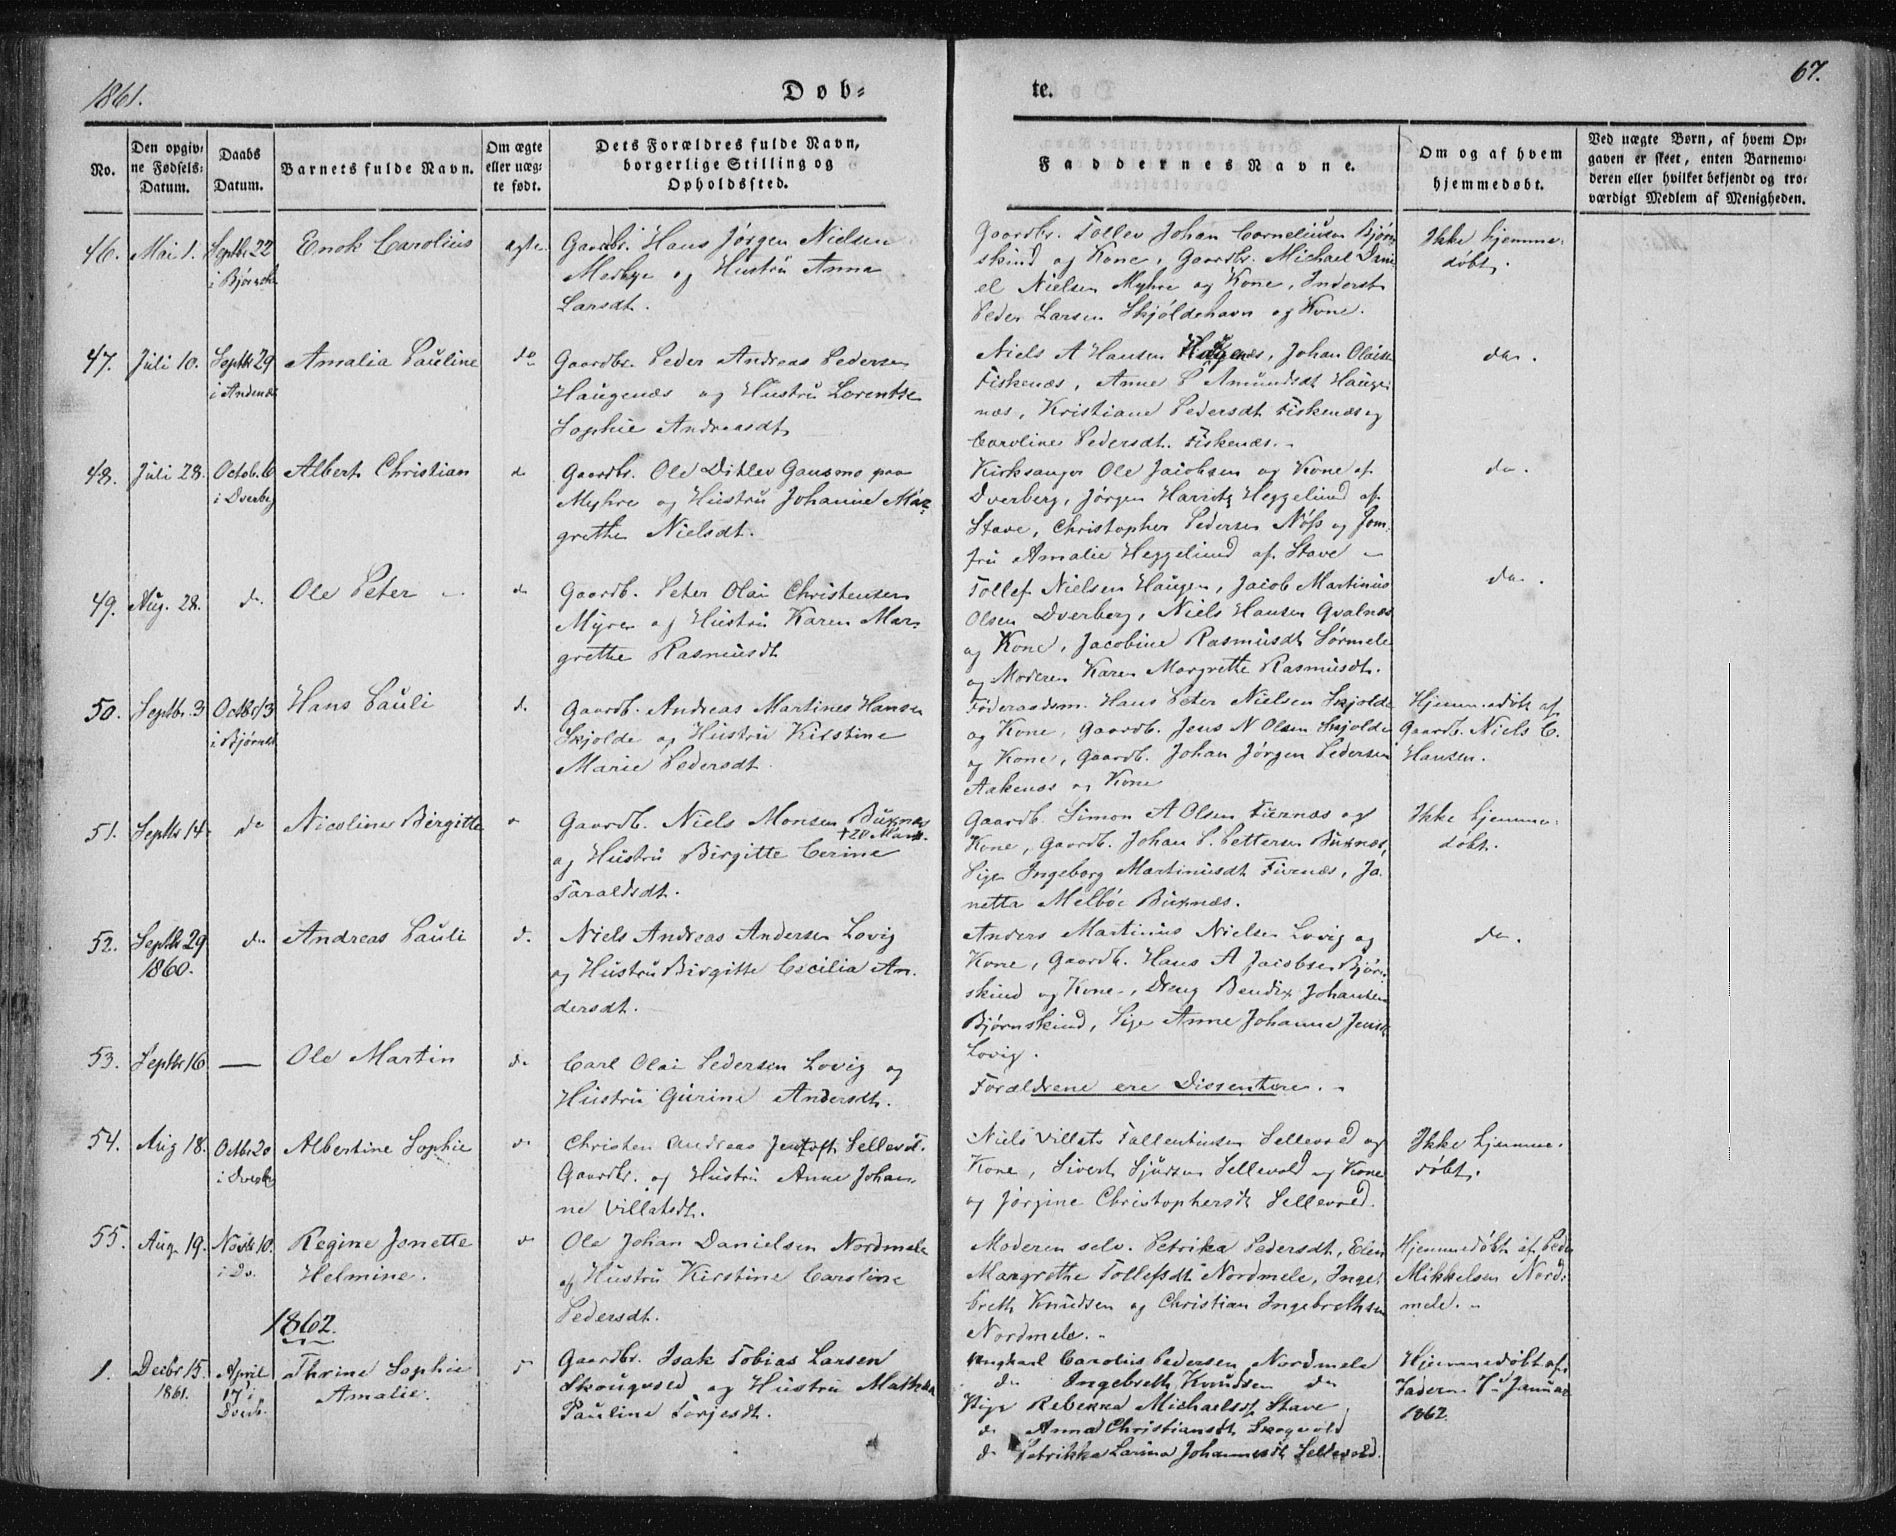 1861.
Døb-
te.
67.
No.
Den opgiv-
ne Fødsels-
Datum.
Daabs
Datum.
Barnets fulde Navn.
Om ægte
eller uæg-
te født.
Dets Forældres fulde Navn,
borgerlige Stilling og
Opholdssted.
Faddernes Navne.
Om og af hvem
hjemmedøbt.
Ved uægte Børn, af hvem Op-
gaven er skeet, enten Barnemo-
deren eller hvilket bekjendt og tro-
værdigt Medlem af Menigheden.
46. Mai 1. Septbr 22
i Bjørnsk
Enok Carolius
ægte.
Gaardbr. Hans Jørgen Nielsen
Medbye og Hustru Anna
Larsdt.
Gaardbr. Tollev Johan Corneliusen Bjørn
skind og Kone, Gaardbr. Michael Dani
el Nielsen Myhre og Kone, Inderst
Peder Larsen Skjoldehavn og Kone.
Ikke hjemme-
døbt.
47. Juli 10. Septbr 29
i Andenæs
Amalia Pauline
do
Gaardbr. Peder Andreas Pedersen
Haugenæs og Hustru Lorentse
Sophie Andreasdt
Niels A Hansen Haugenæs, Johan Olaisen
Fiskenæs, Anne P Amundsdt Hauge-
næs, Kristiane Pedersdt Fiskenæs og
Caroline Pedersdt. Fiskenæs.
do.
48. Juli 28. Octob. 6
i Dverberg
Albert Christian
do
Gaardbr. Ole Ditlev Gausmo paa
Myhre og Hustru Johanne Mar-
grethe Nielsdt.
Kirksanger Ole Jacobsen og Kone af
Dverberg, Jørgen Harritz Heggelund af
Stave, Christopher Pedersen Nøss og Jom-
fru Amalie Heggelund af Stave
do.
49. Aug. 28. do.
Ole Peter
do
Gaardb. Peter Olai Christensen
Myre og Hustru Karen Mar-
grethe Rasmusdt
Tollef Nielsen Haugen, Jacob Martinus
Olsen Dverberg, Niels Hansen Qvalnæs
og Kone, Jacobine Rasmusdt Sørmele
og Moderen Karen Margrethe Rasmusdt.
do.
50. Septbr. 3 Octbr 13
i Bjørnsk
Hans Pauli
d.
Gaardb. Andreas Martines Hansen
Skjolde og Hustru Kirstine
Marie Pedersdt.
Føderaadsm. Hans Peter Nielsen Skjolde
og Kone, Gaardb. Jens N Olsen Skjolde
og Kone, Gaardb. Johan Jørgen Pedersen
Aaknæs og Kone
Hjemmedøbt af
Gaardb. Niels C.
Hansen.
51. Septbr 14. do
Nicoline Birgitte
Gaardb. Niels Monsen Buxnæs
og Hustru Birgitte Cerine
Taraldsdt.
Gaardb. Simon A Olsen Tiurnæs og
Kone, Gaardb. Johan P. Pettersen Buxnæs,
Pige Ingeborg Martinusdt Tiurnæs, Ja
netta Melbøe Buxnæs.
Ikke hjemme-
døbt.
52. Septbr 29
1860.
do
Andreas Pauli
d.
Niels Andreas Andersen Lovig
og Hustru Birgitte Cecilia An-
dersdt.
Anders Martinus Nielsen Lovig og
Kone, Gaardb. Hans A Jacobsen Bjørn-
skind og Kone, Dreng Bendix Johansen
Bjørnskind, Pige Anne Johanne Jensdt
Lovig.
do.
53. Septbr 16 —
Ole Martin
do
Carl Olai Pedersen Lovig og
Hustru Gurine Andersdt.
Forældrene ere Dissentere.
54. Aug 18. Octbr 20
i Dverbr
Albertine Sophie
do
Christen Andreas Jentoft Sellevol.
Gaardbr. og Hustru Anne Johan-
ne Villatsdt.
Niels Villats Tallentinsen Sellevold og
Kone, Sivert Sjursen Sellevold og Kone
og Jørgine Christophersdt Sellevold.
Ikke hjemme-
døbt.
55. Aug. 19. Novbr 10.
i Do.
Regine Jonette
Helmine.
do
Ole Johan Danielsen Nordmele
og Hustru Kirstine Caroline
Pedersdt.
Moderen selv. Petrika Pedersdt, Elen
Margrethe Tollefsdt Nordmele, Inge-
breth Knudsen og Christian Ingebrethsen
Nordmele.
Hjemmedøbt af Peder
Mikkelsen Nord-
mele.
1862.
1. Decbr 15.
1861.
April
17 i
Dverb.
Thrine Sophie
Amalie.
Gaardbr. Isak Tobias Larsen
Skougvold og Hustru Mathea
Pauline Torjesdt.
Ungkarl Carolius Pedersen Nordmele
do Ingebreth Knudsen do
Pige Rebekka Michaelsdt Stave
do Anna Christiansdt Skogvold
do Petrikka Larina Johannesdt Sellevold.
Hjemmedøbt af
Faderen Januar
1862.